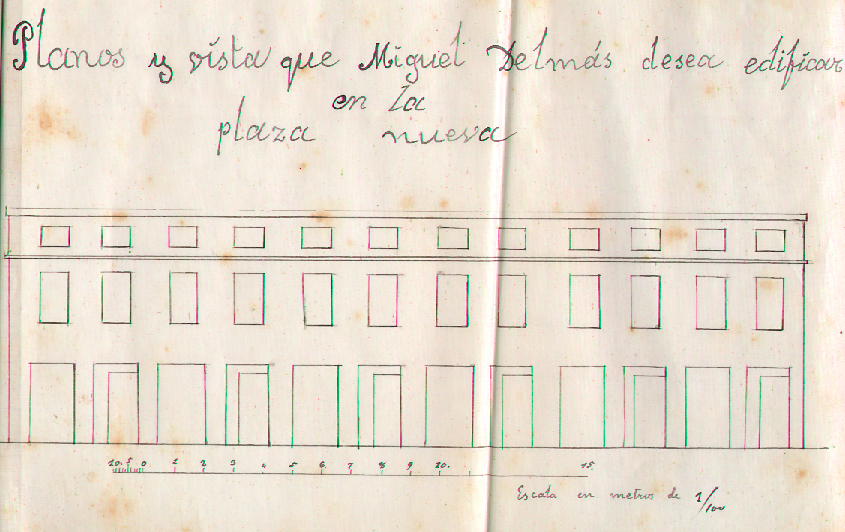 Planos y vista que Miguel Delmás desea edificar
en la
plaza nueva
10. 5 0 1 2 3 4 5 6 7 8 9 10. 15
Escala en metros de 1/100